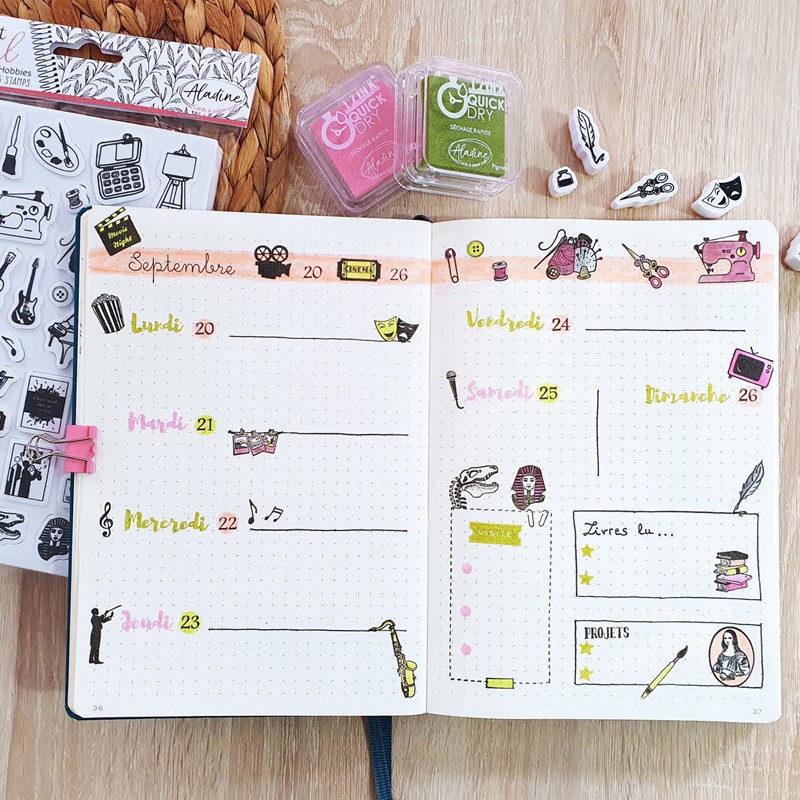 Hobbies
STAMPS
Aladine
IZINK
QUICK
DRY
SÉCHAGE RAPIDE
Aladine
IZINK
QUICK
DRY
SÉCHAGE RAPIDE
Aladine
Pigment
Movie
Night
Septembre 20 CINEMA 26
Lundi 20
Mardi 21
Mercredi 22
Jeudi 23
36
Vendredi 24
Samedi 25
Dimanche 26
VISITE
Livres lu...
PROJETS
37